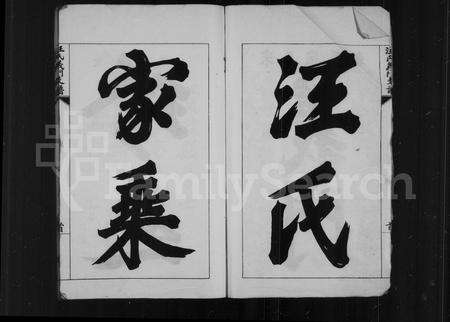 汪氏
家乘
首
首
FamilySearch